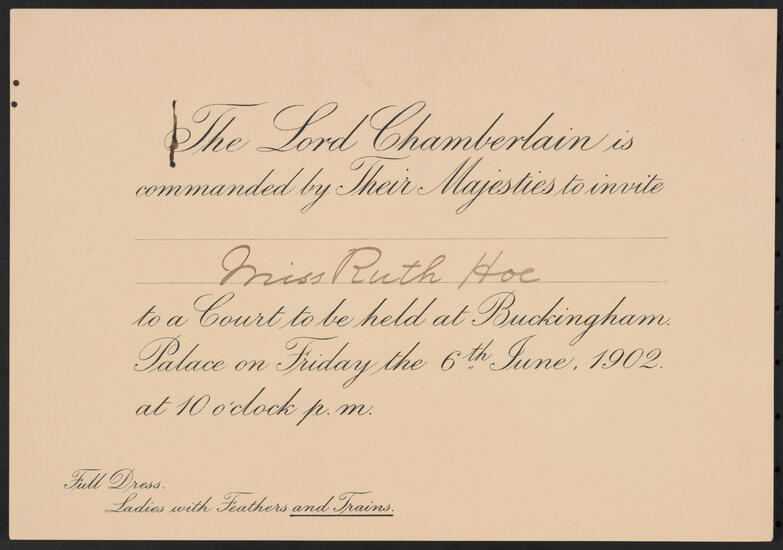 The Lord Chamberlain is
commanded by Their Majesties to invite
Miss Ruth Hoe
to a Court to be held at Buckingham
Palace on Friday the 6th June, 1902.
at 10 o'clock p.m.
Full Dress.
Ladies with Feathers and Trains.